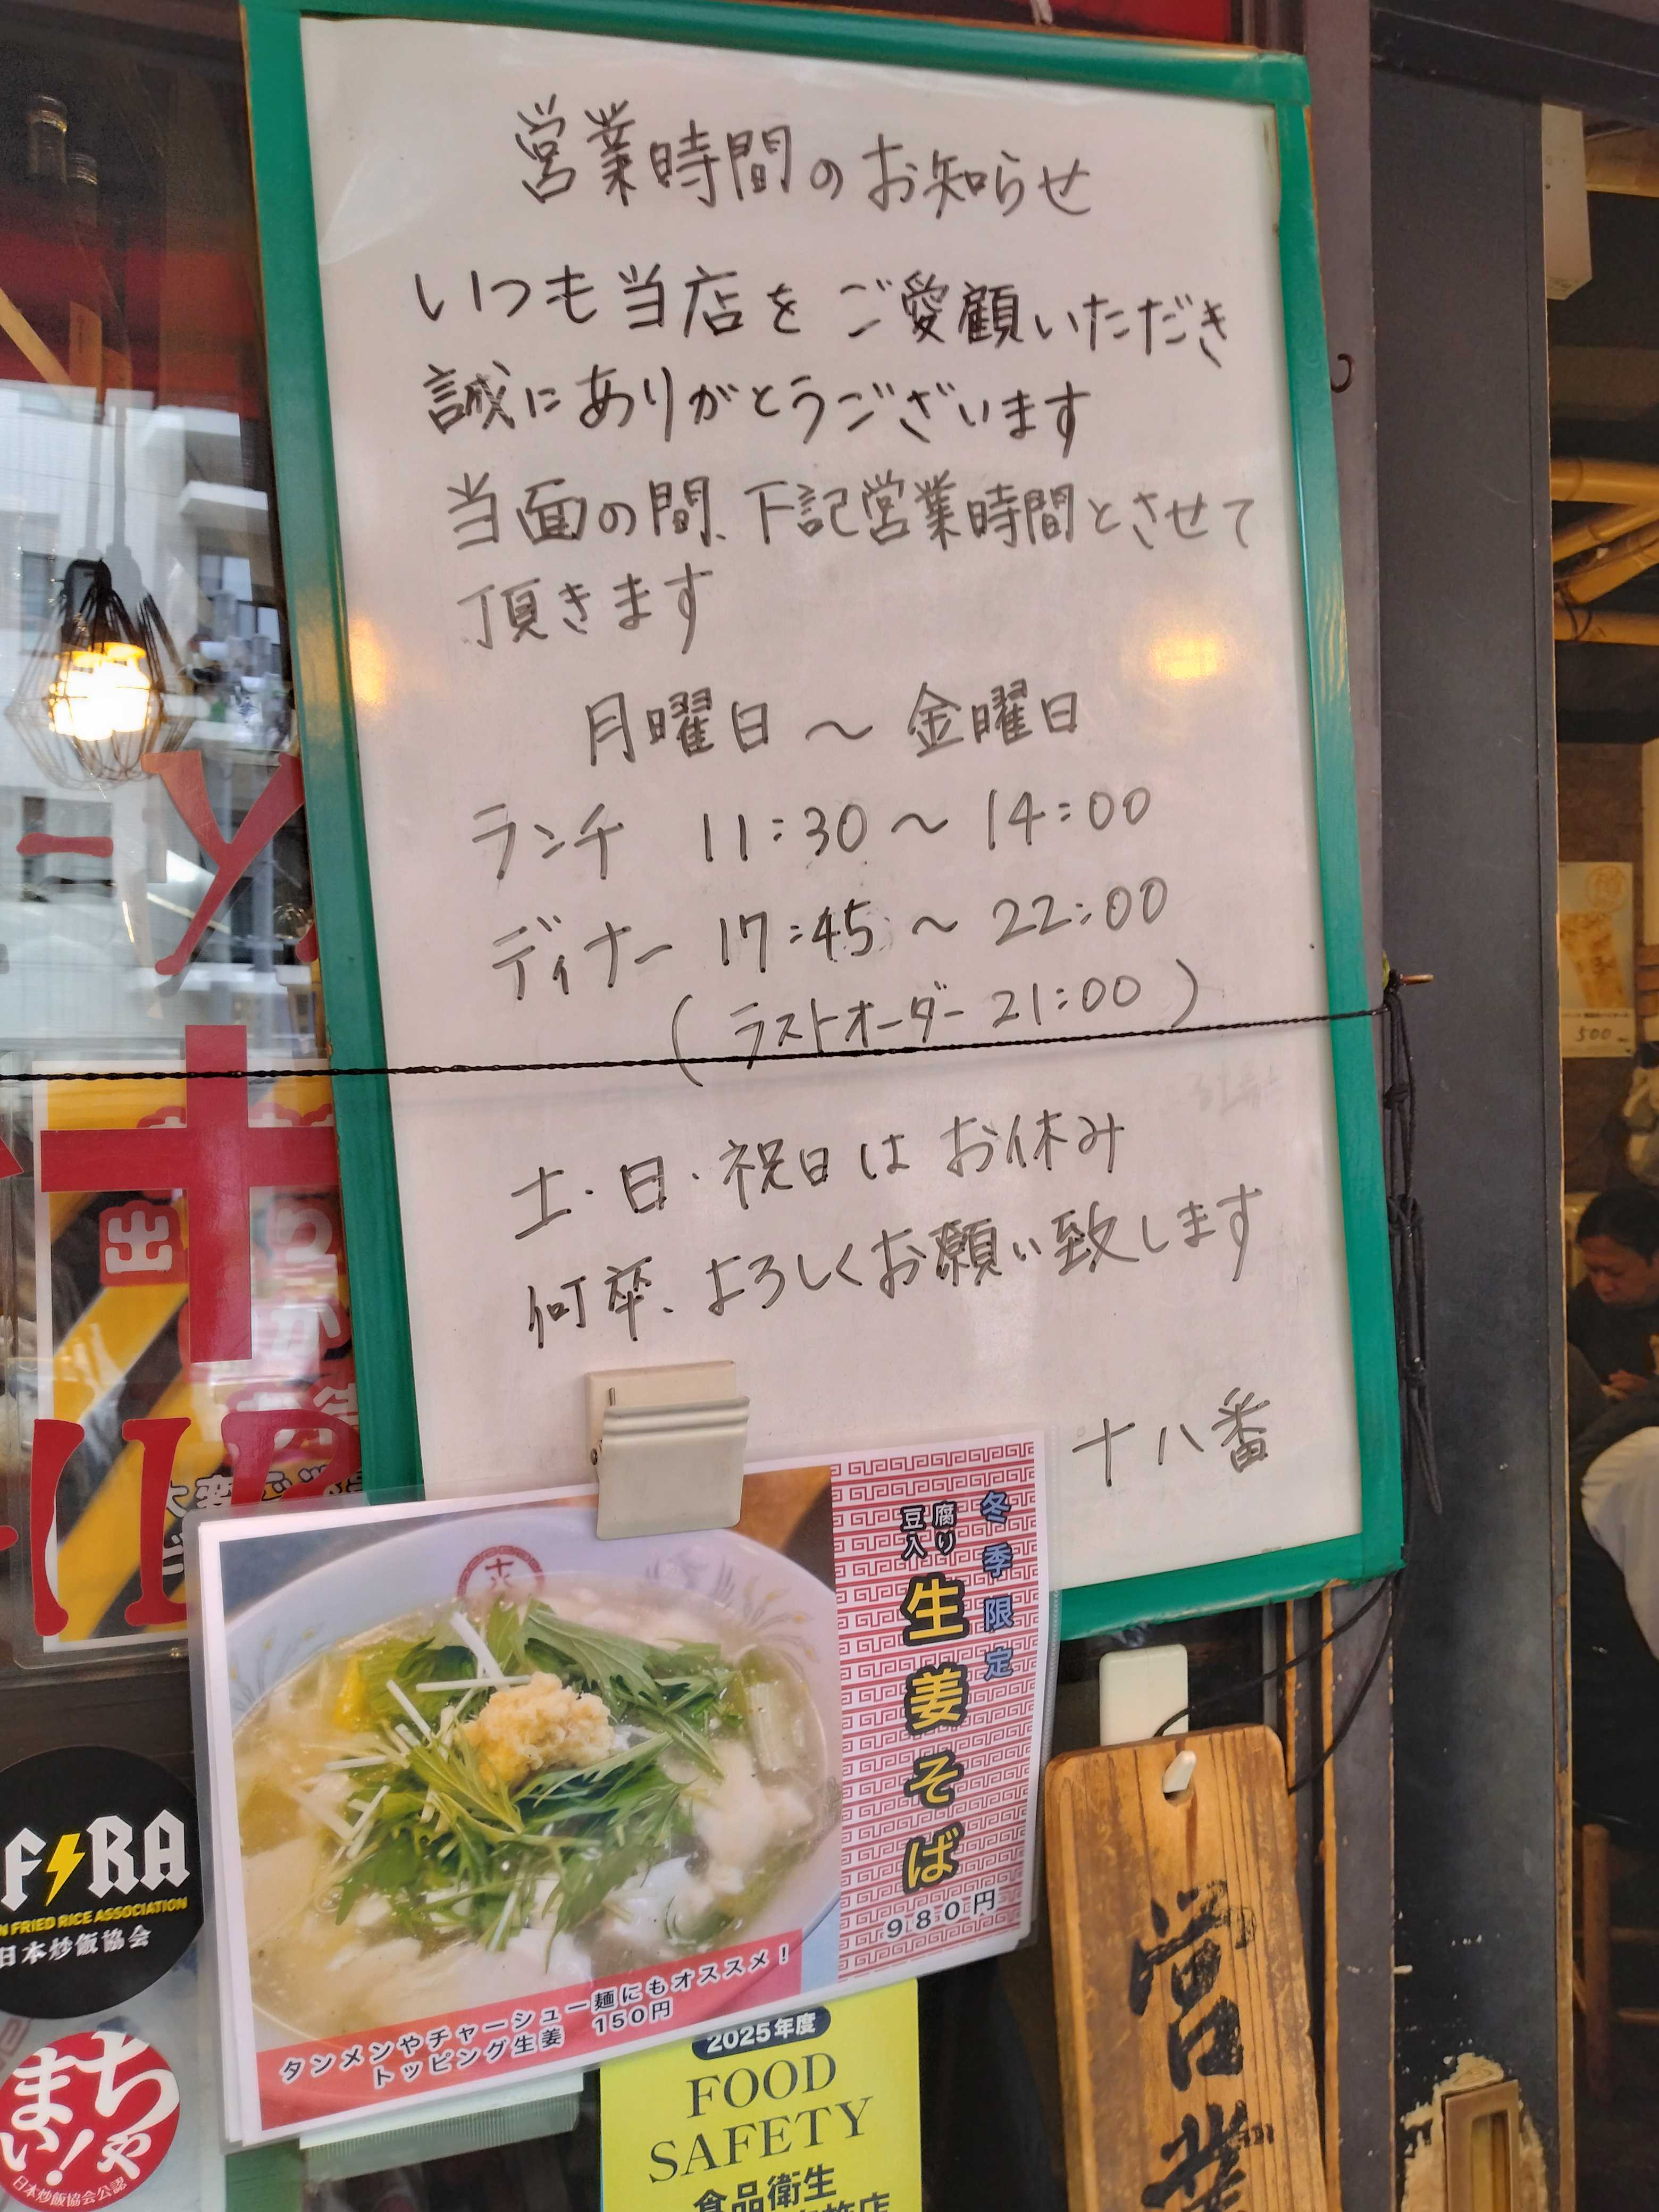 営業時間のお知らせ
いつも当店をご愛顧いただき
誠にありがとうございます
当面の間、下記営業時間とさせて
頂きます
月曜日～金曜日
ランチ 11:30～14:00
ディナー 17:45～22:00
(ラストオーダー 21:00)
土・日・祝日はお休み
何卒、よろしくお願い致します
十八番
冬季限定
豆腐入り
生姜そば
980円
十八
タンメンやチャーシュー麺にもオススメ！
トッピング生姜 150円
2025年度
FOOD
SAFETY
食品衛生
営業
FRA
N FRIED RICE ASSOCIATION
日本炒飯協会
ちゃ
まい!
日本炒飯協会公認
出
500